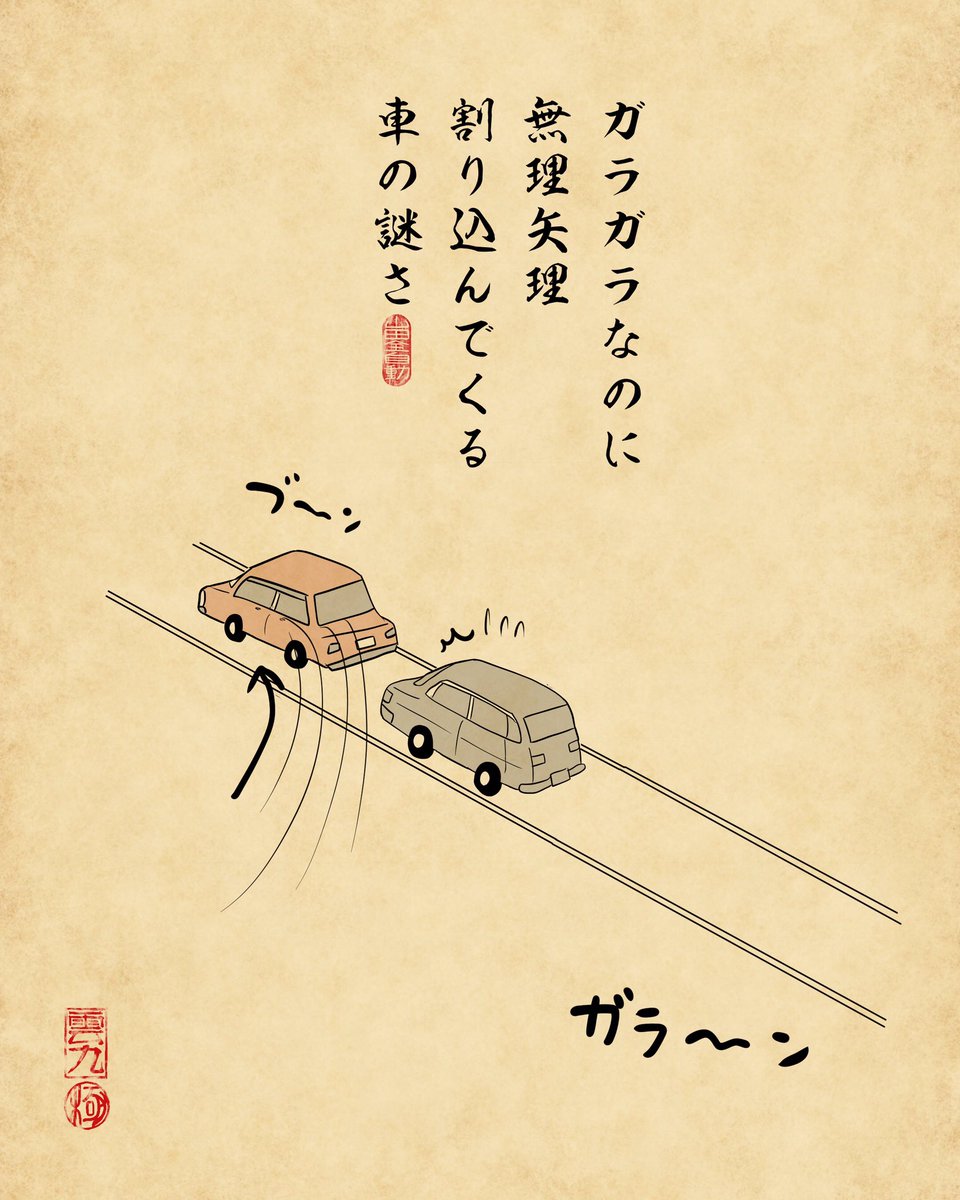 ガラガラなのに
無理矢理
割り込んでくる
車の謎さ
ブ〜ン
ガラ〜ン